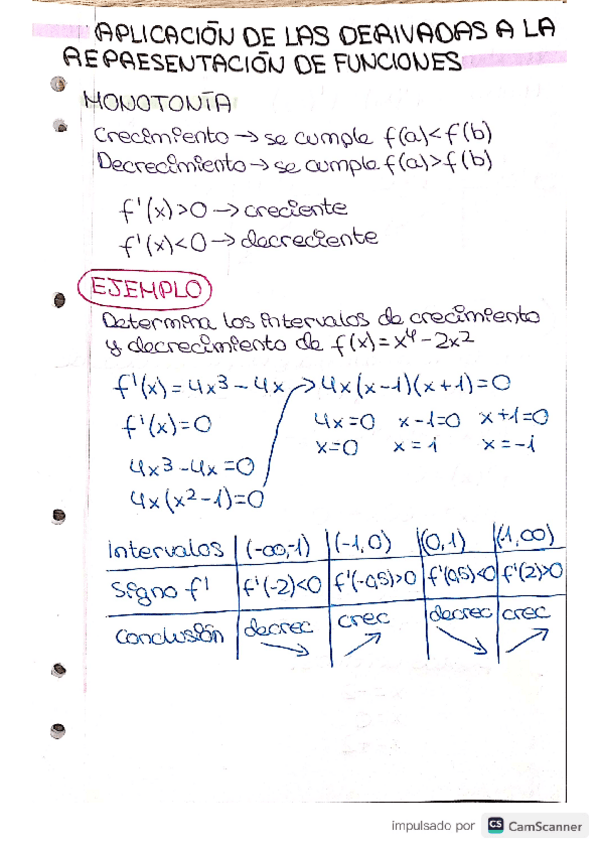 APLICACIÓN DE LAS DERIVADAS A LA
REPRESENTACIÓN DE FUNCIONES
MONOTONÍA
Crecimiento → se cumple f(a)<f(b)
Decrecimiento → se cumple f(a)>f(b)
f'(x)>0 → creciente
f'(x)<0 → decreciente
EJEMPLO
Determina los intervalos de crecimiento
y decrecimiento de f(x)=x⁴-2x²
f'(x)=4x³-4x → 4x(x-1)(x+1)=0
f'(x)=0 4x=0 x-1=0 x+1=0
x=0 x=1 x=-1
4x³-4x=0
4x(x²-1)=0
intervalos (-∞,-1) (-1,0) (0,1) (1,∞)
Signo f' f'(-2)<0 f'(-0,5)>0 f'(0,5)<0 f'(2)>0
Conclusión decrec crec decrec crec
impulsado por CS CamScanner